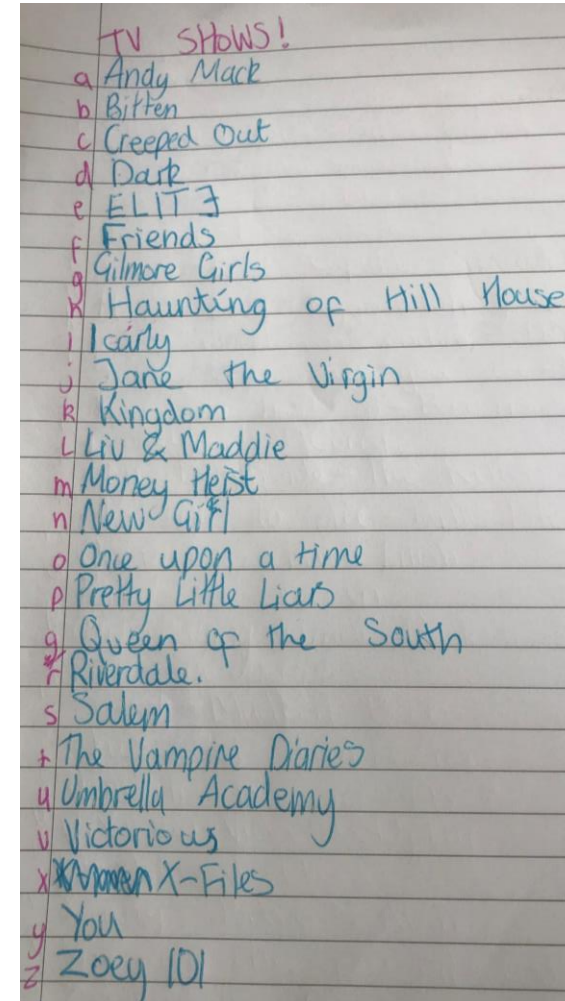 TV SHOWS!
a Andy Mack
b Bitten
c Creeped Out
d Dark
e ELITE
f Friends
g Gilmore Girls
h Haunting of Hill House
i Icarly
j Jane the Virgin
k Kingdom
L Liv & Maddie
m Money Heist
n New Girl
o Once upon a time
p Pretty Little Liars
q Queen of the South
r Riverdale.
s Salem
t The Vampire Diaries
u Umbrella Academy
v Victorious
x X-Files
y You
z Zoey 101